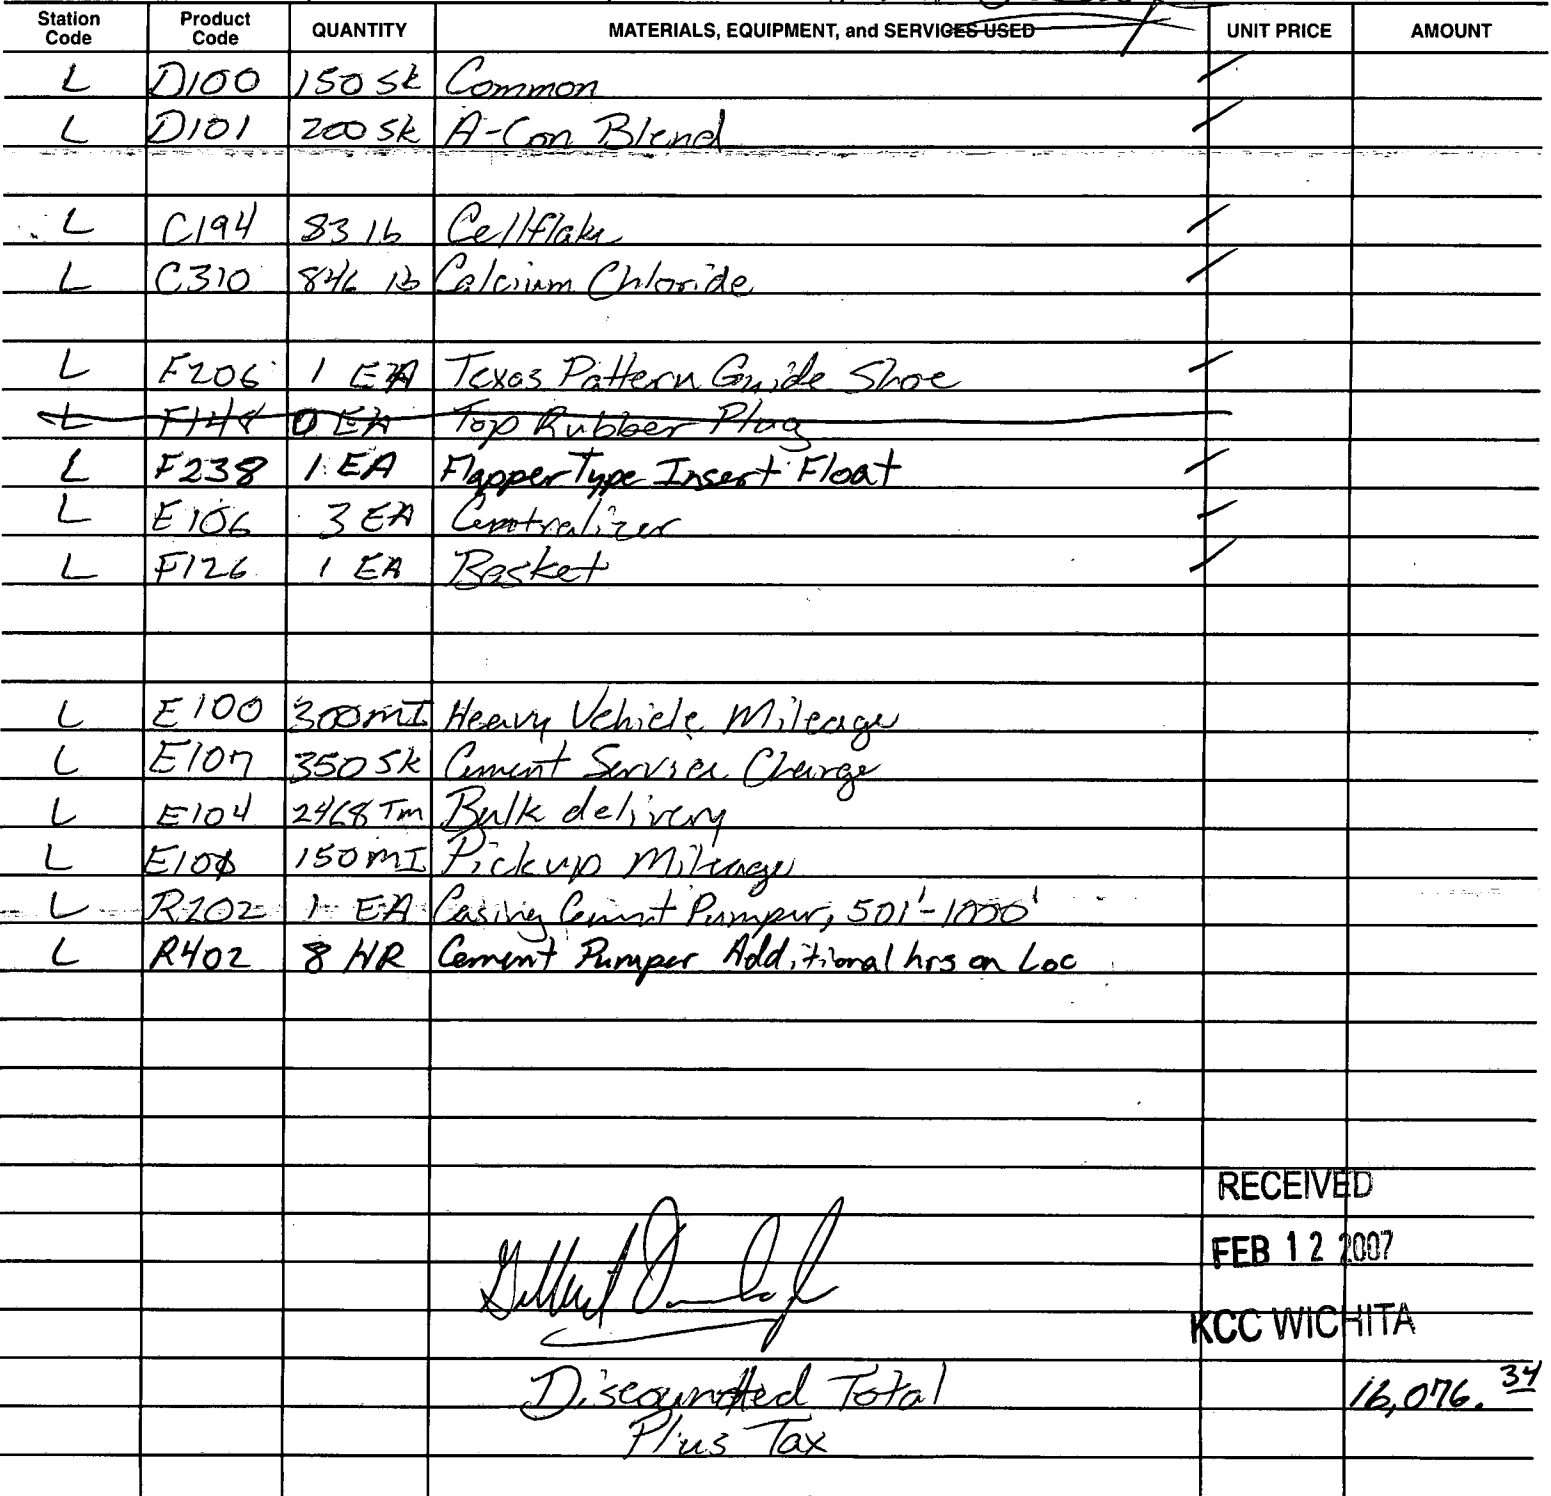 Station Code Product Code QUANTITY MATERIALS, EQUIPMENT, and SERVICES USED UNIT PRICE AMOUNT
L D100 150 sk Common
L D101 200 sk A-Con Blend
L C194 83 lb Cellflake
L C310 846 lb Calcium Chloride
L F206 1 EA Texas Pattern Guide Shoe
L 0 EA Top Rubber Plug
L F238 1 EA Flapper Type Insert Float
L E106 3 EA Centralizer
L F126 1 EA Basket
L E100 300 MI Heavy Vehicle Mileage
L E107 350 Sk Cement Service Charge
L E104 2468 Tm Bulk delivery
L 150 MI Pickup Mileage
L R202 1 EA Casing Cement Pumper, 501'-1000'
L R402 8 HR Cement Pumper Additional hrs on Loc
RECEIVED
FEB 12 2007
KCC WICHITA
Discounted Total 16,076.34
Plus Tax